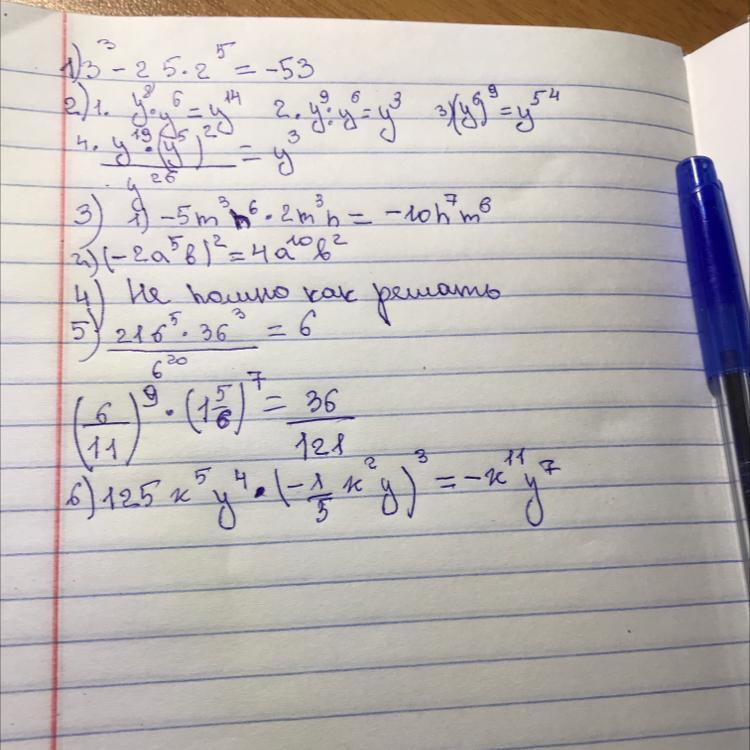 1) 3³ - 2 5 · 2⁵ = -53
2) 1. y⁸ · y⁶ = y¹⁴ 2. y⁹ : y⁶ = y³ 3) (y⁶)⁹ = y⁵⁴
4. y¹⁹ · (y⁵)² / y²⁶ = y³
3) 1) -5m³n⁶ · 2m³n = -10n⁷m⁶
2) (-2a⁵b)² = 4a¹⁰b²
4) Не помню как решать
5) 216⁵ · 36³ / 6²⁰ = 6
(6/11)⁹ · (1 5/6)⁷ = 36/121
6) 125 x⁵y⁴ · (-1/5 x²y)³ = -x¹¹y⁷